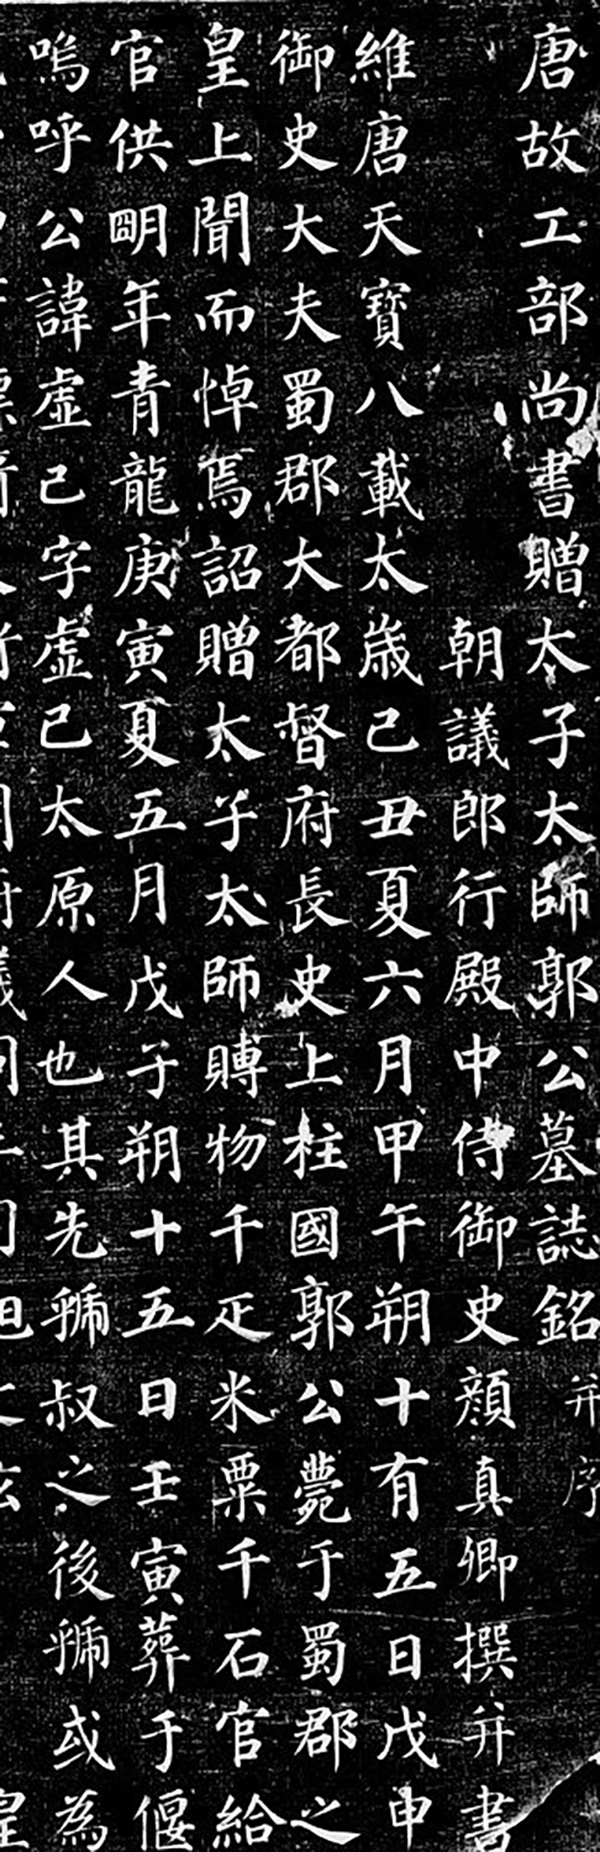 唐故工部尚書贈太子太師郭公墓誌銘并序
朝議郎行殿中侍御史顏真卿撰并書
維唐天寶八載太歲己丑夏六月甲午朔十有五日戊申
御史大夫蜀郡大都督府長史上柱國郭公薨于蜀郡之
皇上聞而悼焉詔贈太子太師賻物千疋米粟千石官給
官供朙年青龍庚寅夏五月戊子朔十五日壬寅葬于偃
嗚呼公諱虛己字虛己太原人也其先虢叔之後虢或為